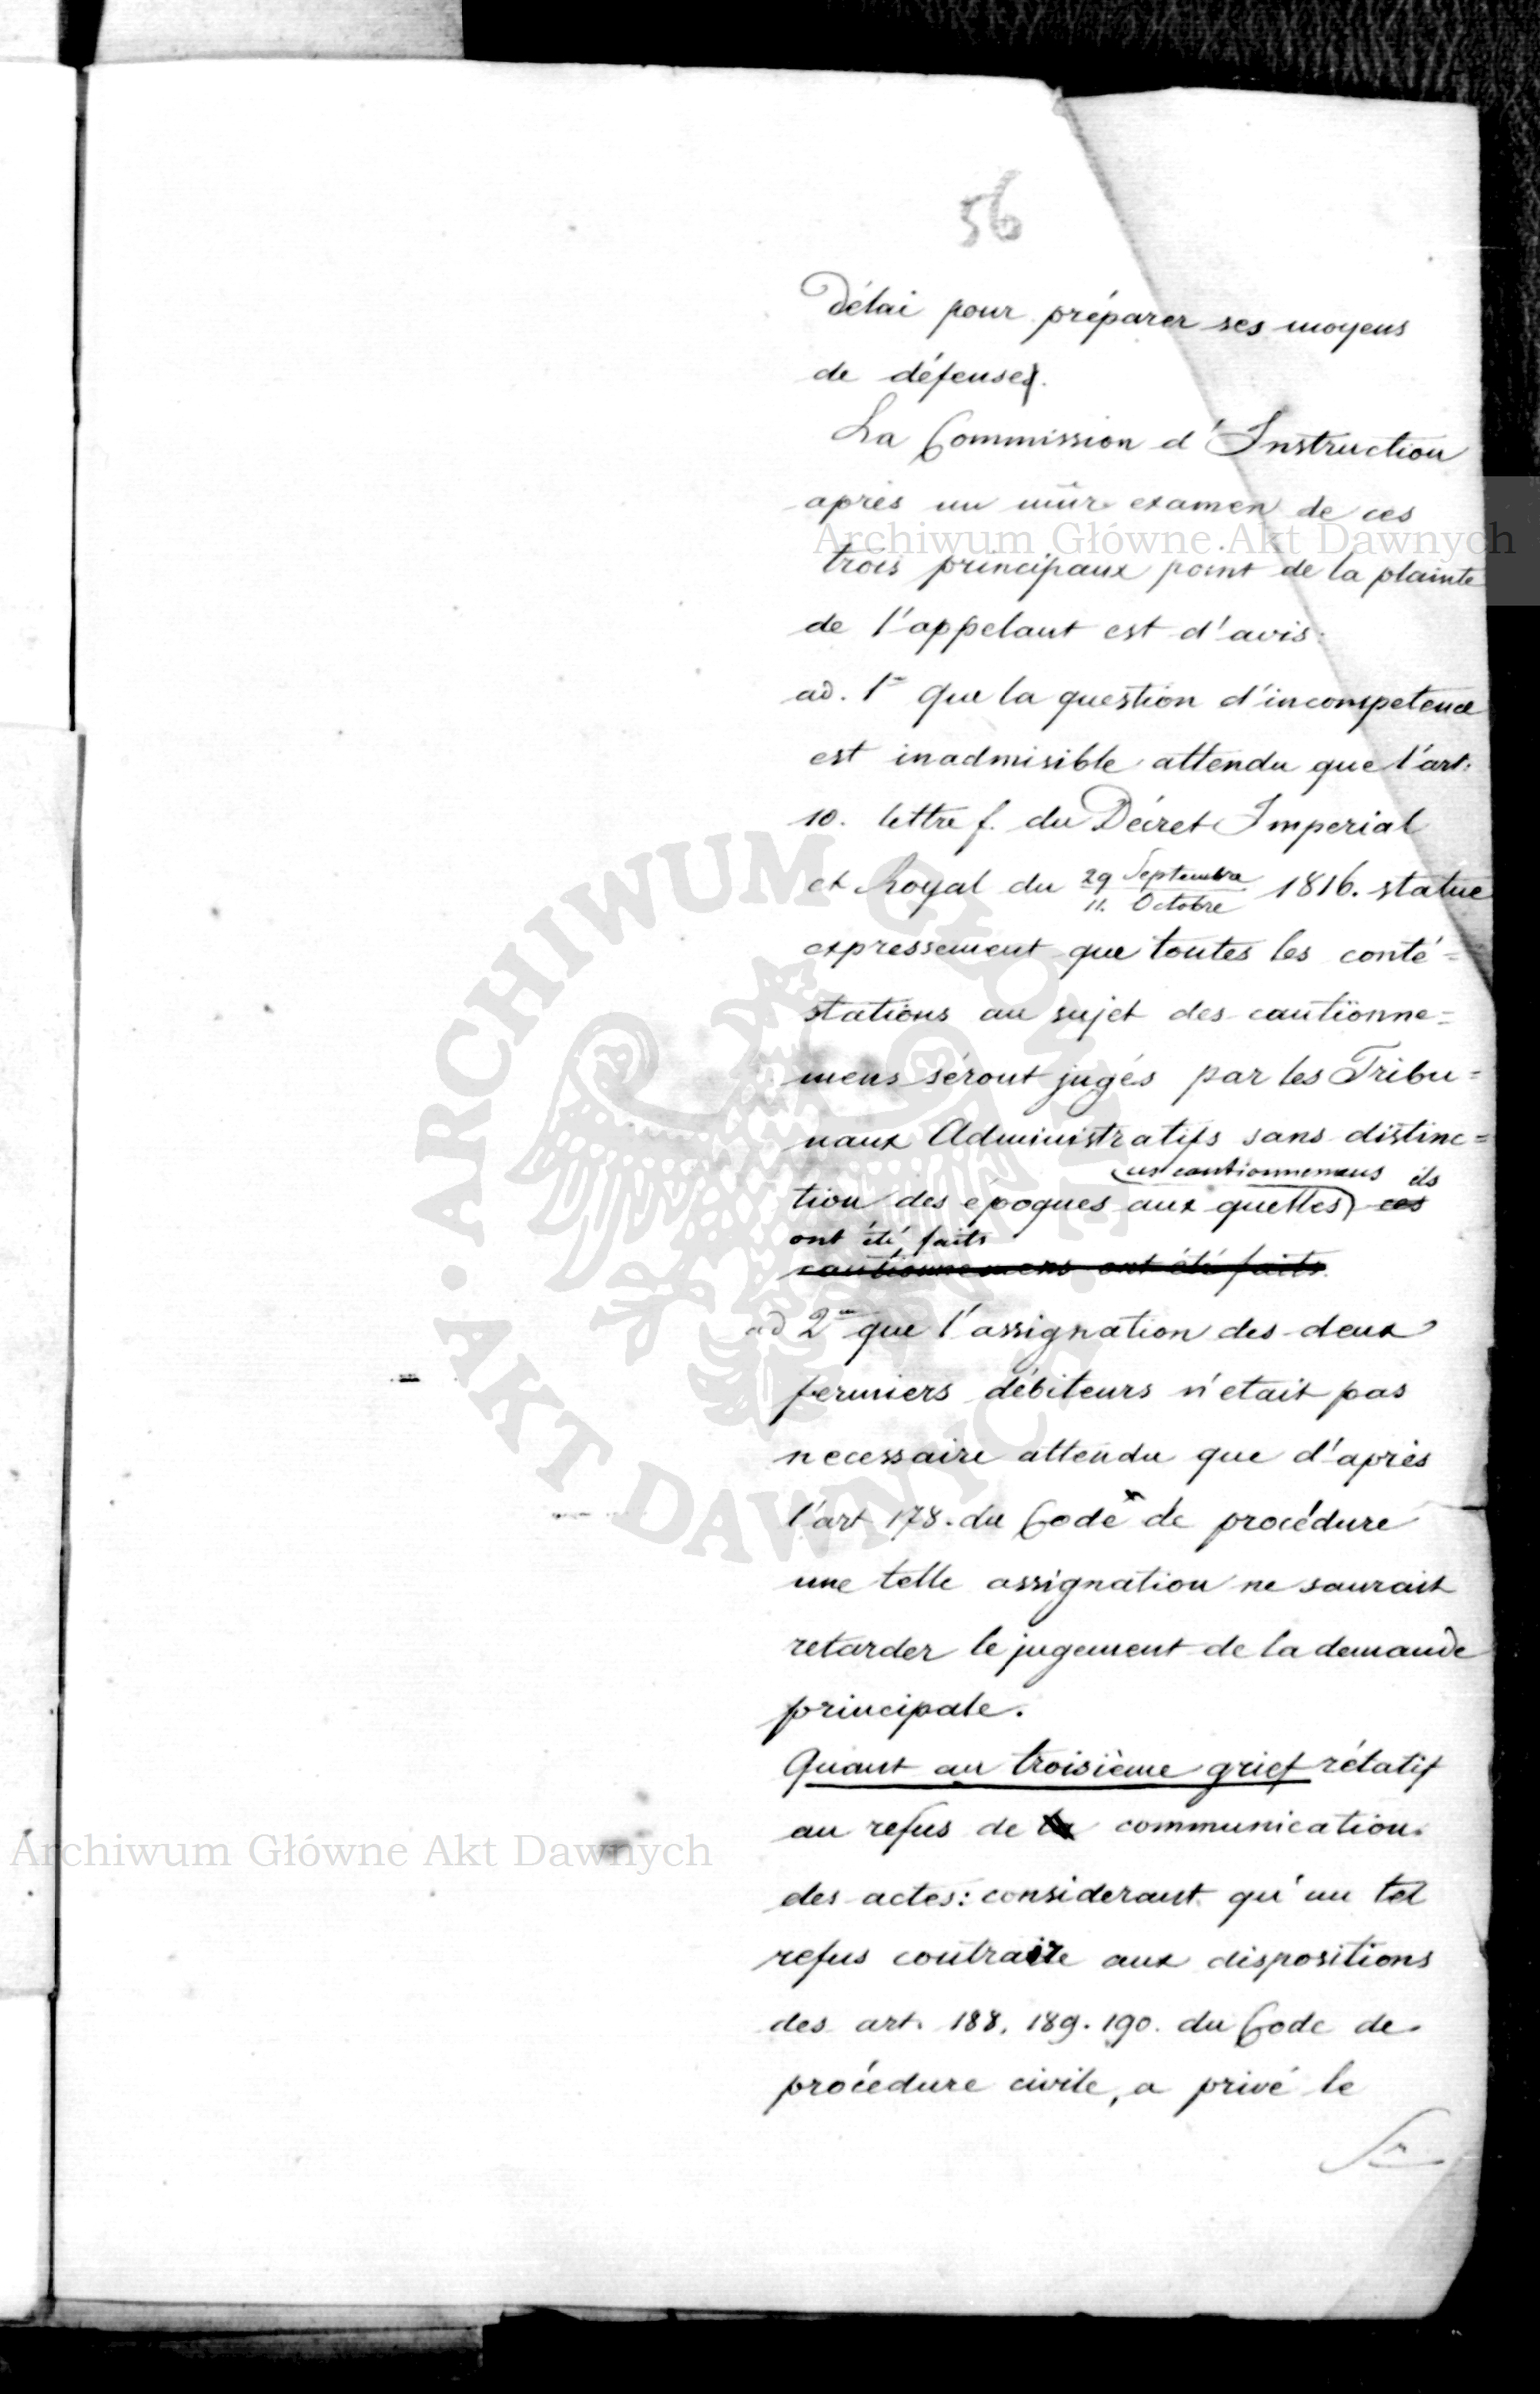 56
Délai pour préparer ses moyens
de défense.
La Commission d'Instruction
après un mûr examen de ces
trois principaux point de la plainte
de l'appelant est d'avis:
ad. 1º que la question d'incompetence
est inadmisible attendu que l'art.
10. lettre f. du Décret Imperial
et Royal du 29 Septembre / 11. Octobre 1816. statue
expressement que toutes les conté=
stations au sujet des cautionne=
mens séront jugés par les Tribu=
naux Administratifs sans distinc=
ces cautionnemens ils
tion des époques aux quelles ces
ont été faits
cautionnemens ont été faits.
ad 2º que l'assignation des deux
fermiers débiteurs n'etait pas
necessaire attendu que d'après
l'art 178. du Code de procédure
une telle assignation ne saurait
retarder le jugement de la demande
principale.
Quant au troisième grief rélatif
au refus de la communication
des actes: considerant qu'un tel
refus contraire aux dispositions
des art. 188. 189. 190. du Code de
procédure civile, a privé le
Sr
Archiwum Główne Akt Dawnych
ARCHIWUM GŁÓWNE · AKT DAWNYCH ·
Archiwum Główne Akt Dawnych